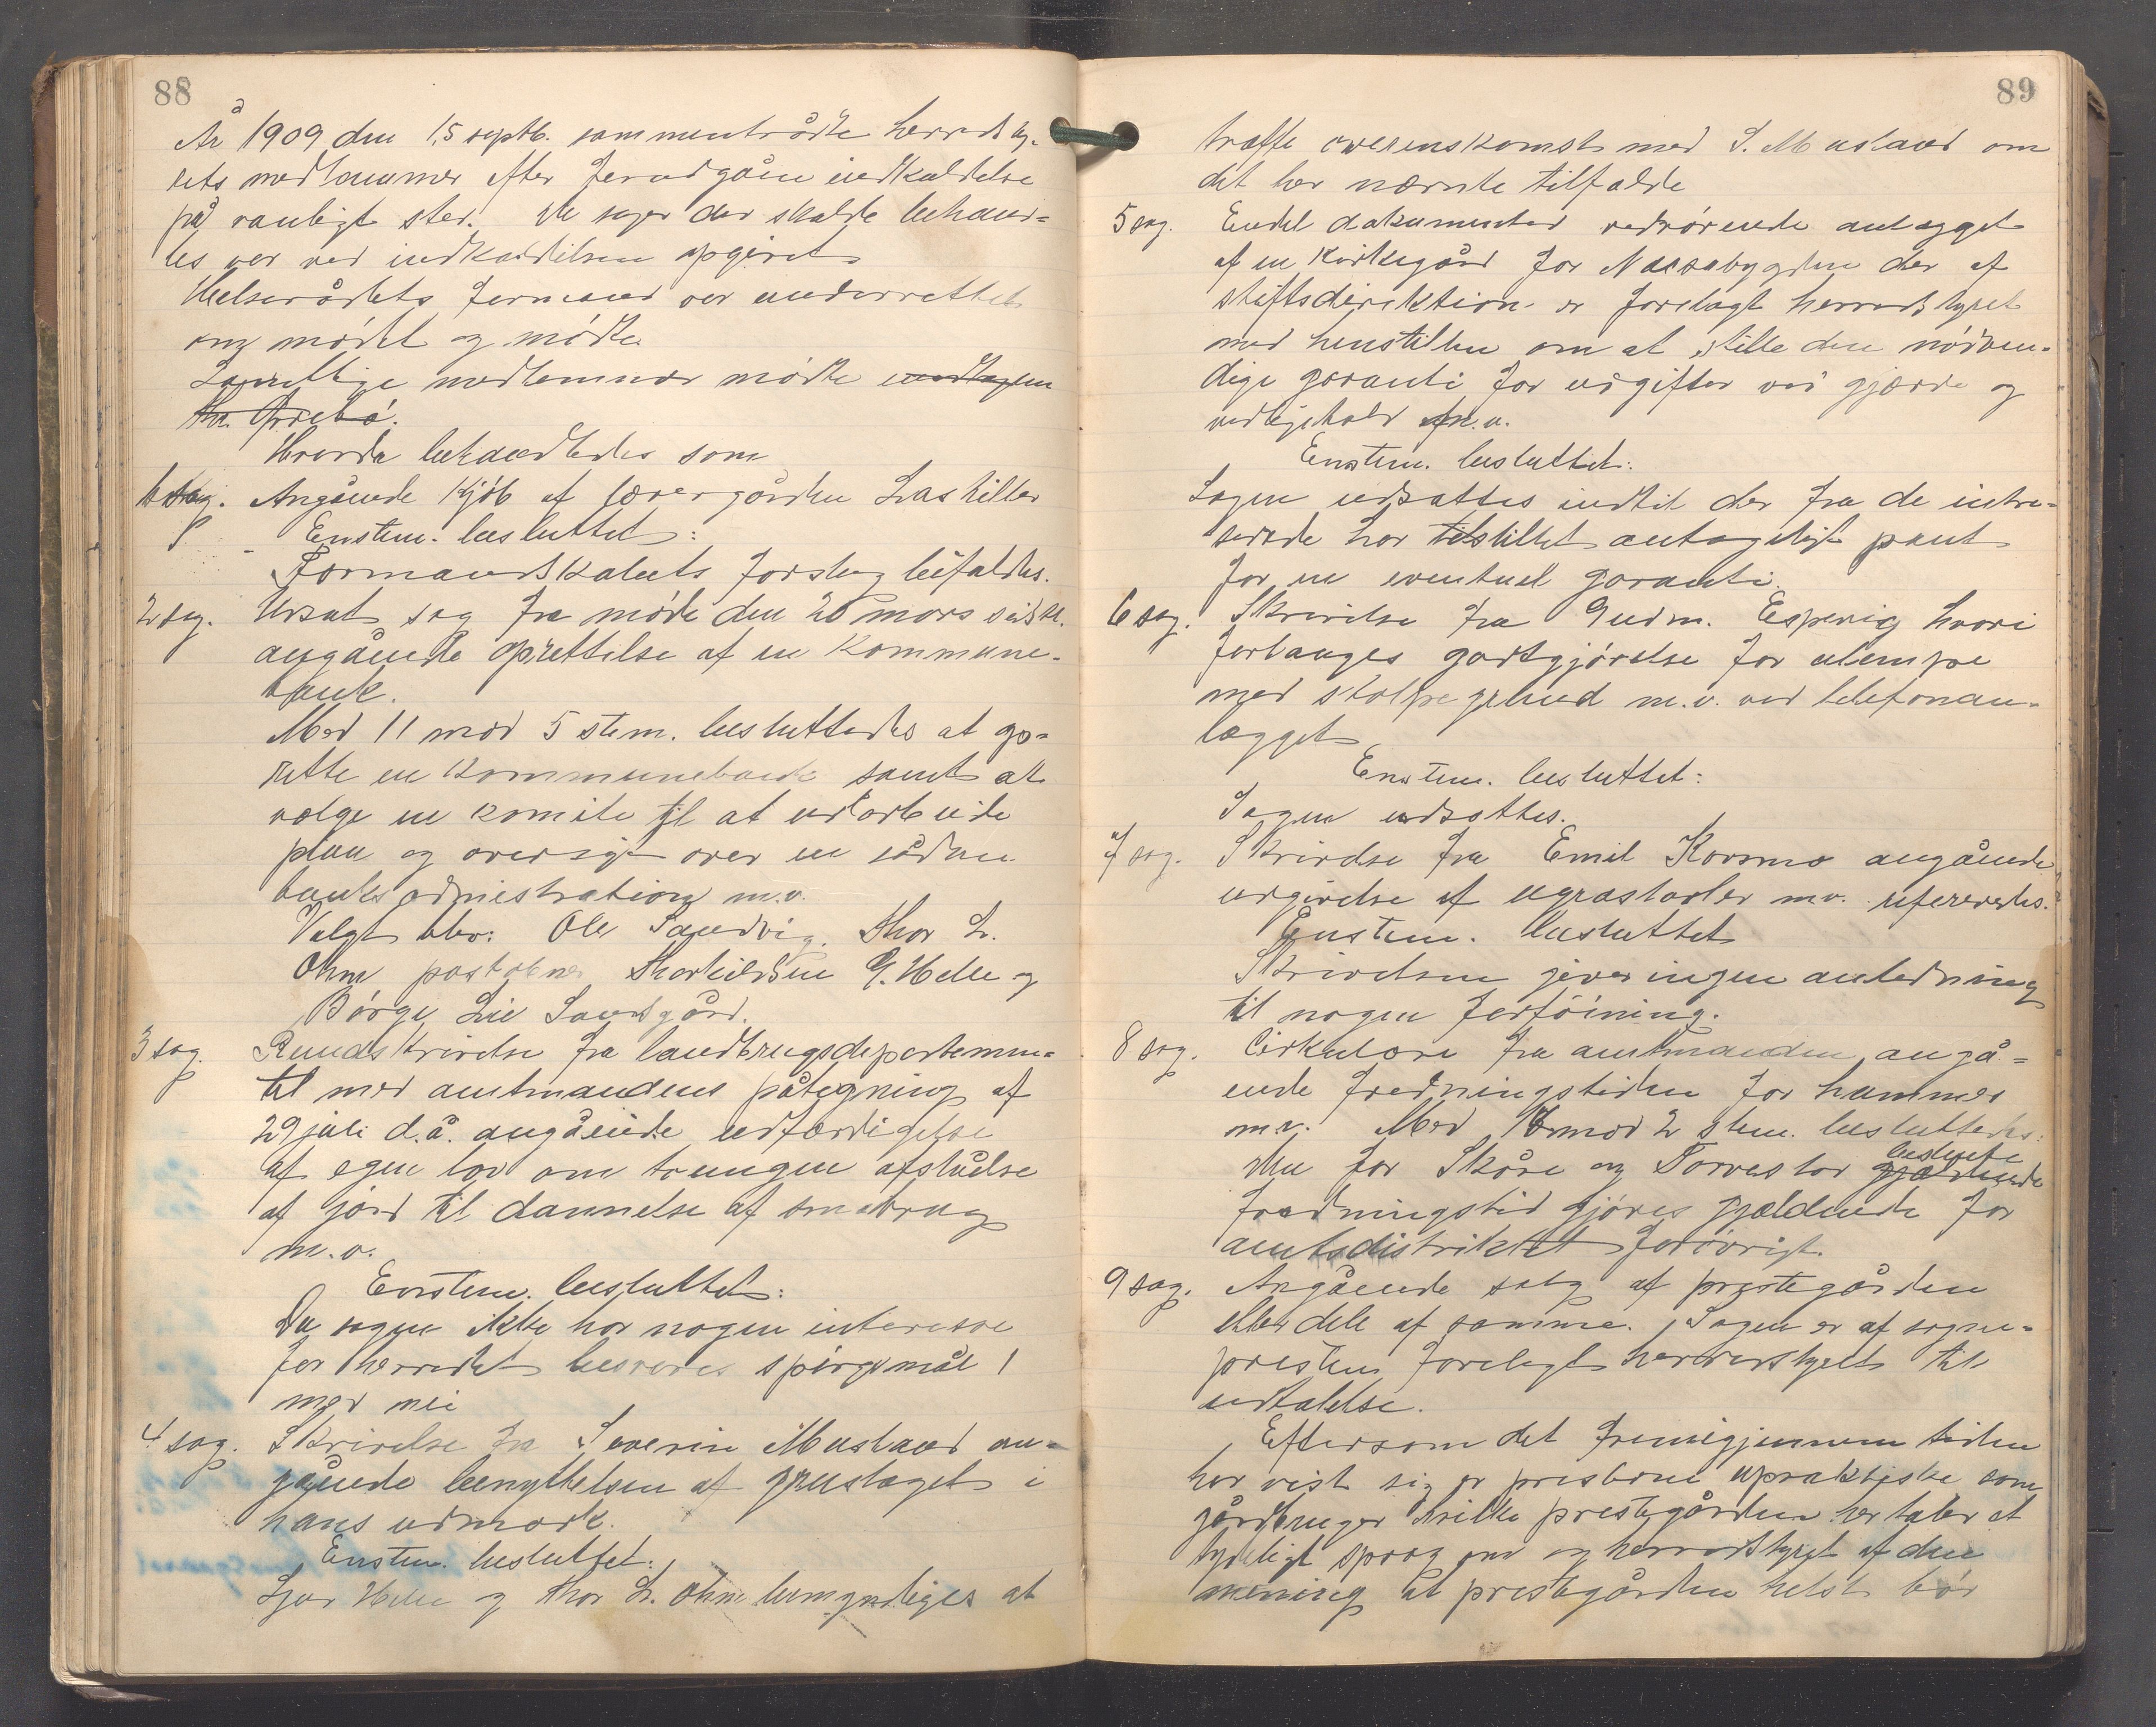 88
År 1909 den 15 septb. sammentrådte herredsty-
rets medlemmer efter forudgåen indkaldelse
på vanligt sted. De sager der skulde behand=
les var ved indkaldelsen opgivet
Helserådets formand var underrettet
om mødet og mødte
Samtlige medlemmer mødte undtagen
hr. Grebø.
Hvorda behandledes som
1 sag. Angående kjøb af lærergården
Enstem. besluttet:
Formandskabets forslag bifaldes.
2 sag. Udsat sag fra møde den 26 mars sidstl.
angående oprettelse af en kommune-
bank.
Med 11 mod 5 stem. besluttedes at op=
rette en kommunebank samt at
vælge en komite til at udarbeide
plan og oversigt over en sådan
banks admistration m.v.
Valgt blev: Ole Sandvig, Thor L.
Ohm postobner Thorkildsen G. Helle og
Børge Lie Sandsgård.
3 sag. Rundskrivelse fra landbrugsdepartemen=
tet med amtmandens påtegning af
29 juli d.å. angående udfærdigelse
af egen lov om tvungen afståelse
af jord til dannelse af småbrug
m.v.
Enstem. besluttet:
Da sagen ikke har nogen interesse
for herredet besvares spørgsmål 1
med nei
4 sag. Skrivelse fra Severin Musland an=
gående benyttelsen af grustaget i
hans udmark.
Enstem. besluttet:
Helle og Thor L. Ohm bemyndiges at
89
træffe overenskomst med S. Musland om
det her nævnte tilfælde
5 sag. Endel dokumenter vedrørende anlægget
af en kirkegård for Næssabygden der af
stiftsdirektion er forelagt herredstyret
med henstillen om at stille den nødven-
dige garanti for udgifter ved gjærde og
vedligehold m.v.
Enstem. besluttet:
Sagen udsættes indtil der fra de intre-
serede har tilstillet antageligt pant
for en eventuel garanti.
6 sag. Skrivelse fra Gudm. Espevig hvori
forlanges godtgjørelse for ulempe
med stolpegrund m.v. ved telefonan-
lægget
Enstem. besluttet:
Sagen udsættes.
7 sag. Skrivelse fra Emil Korsmo angående
udgivelse af ugræstavler m.v. refereredes.
Enstem. besluttet
Skrivelsen giver ingen anledning
til nogen forføining.
8 sag. Cirkulære fra amtmanden angå=
ende fredningstiden for hummer
m.v. Med mod 2 stem. besluttedes:
Den for Skåre og Torvestad gjældende bestemte
fredningstid gjøres gjældende for
amtsdistriktet forøvrigt.
9 sag. Angående salg af prestegården
eller dele af samme. Sagen er af sogne-
presten forelagt herredsstyret til
udtalelse.
Eftersom det fremigjennem tiden
har vist sig er presterne upraktiske som
gårdbruger hvilke prestegården her taler et
tydeligt sprog om og herredstyret af den
mening at prestegården helst bør